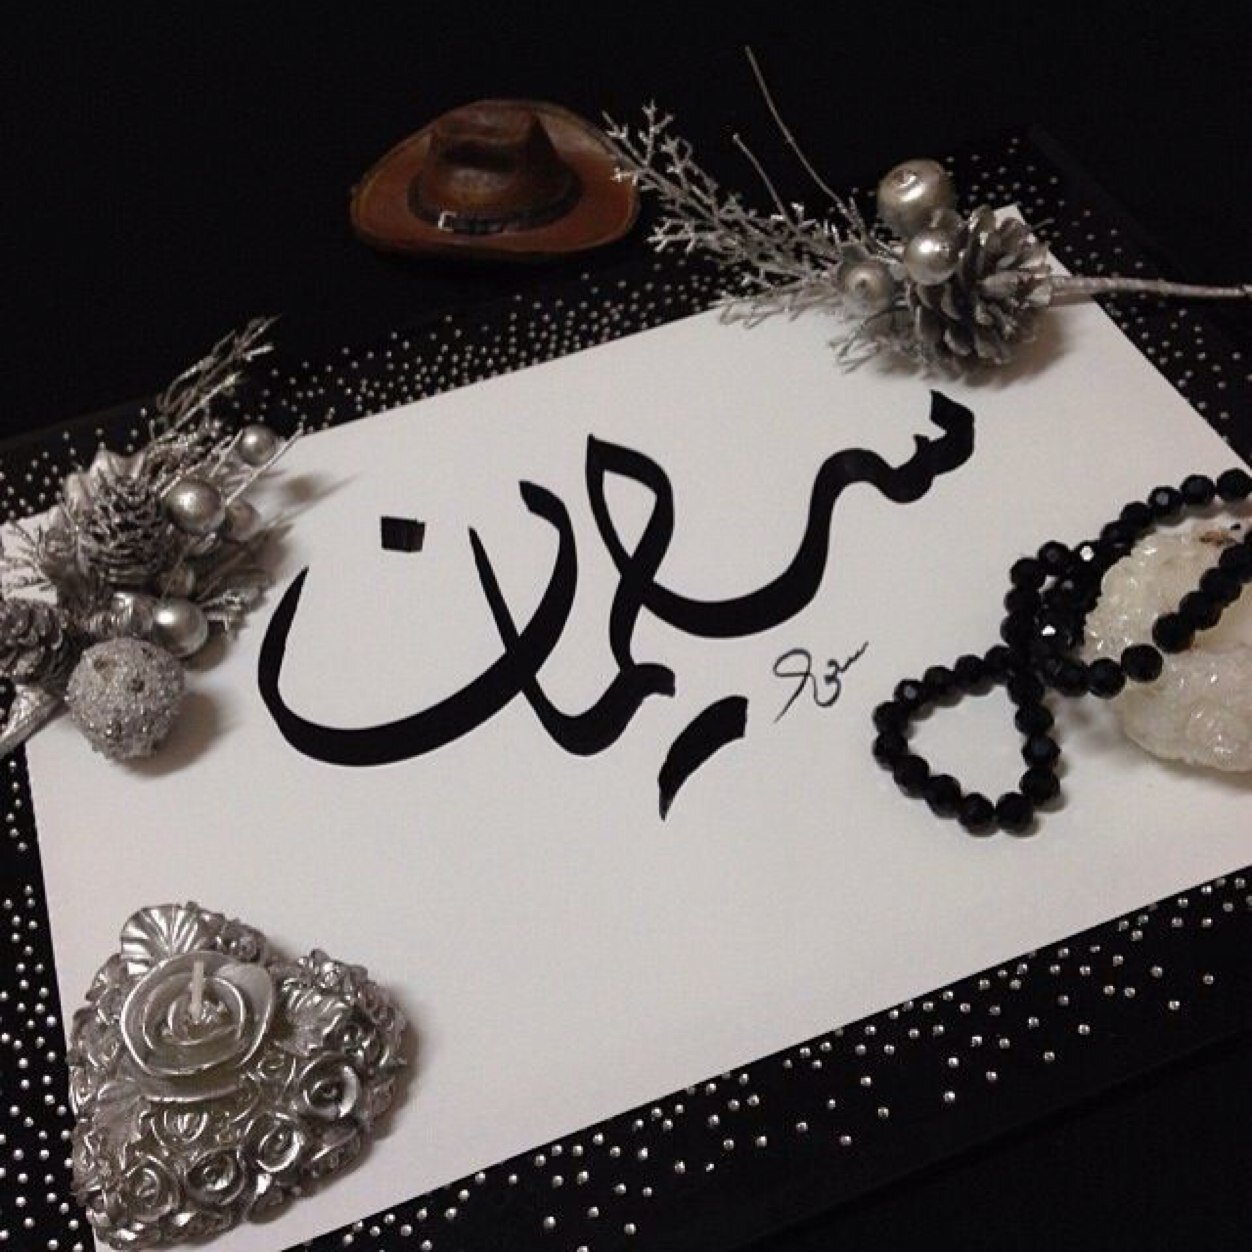 سليمان